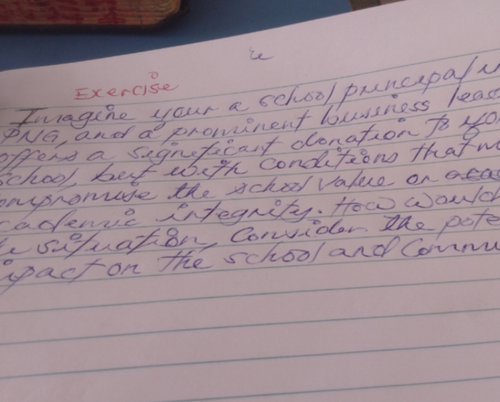 Exercise
Imagine your a school principal in
PNG, and a prominent business
offers a significant donation to
school, but with conditions that
compromise the school value or
academic integrity. How would
situation, Consider the
impact on the school and